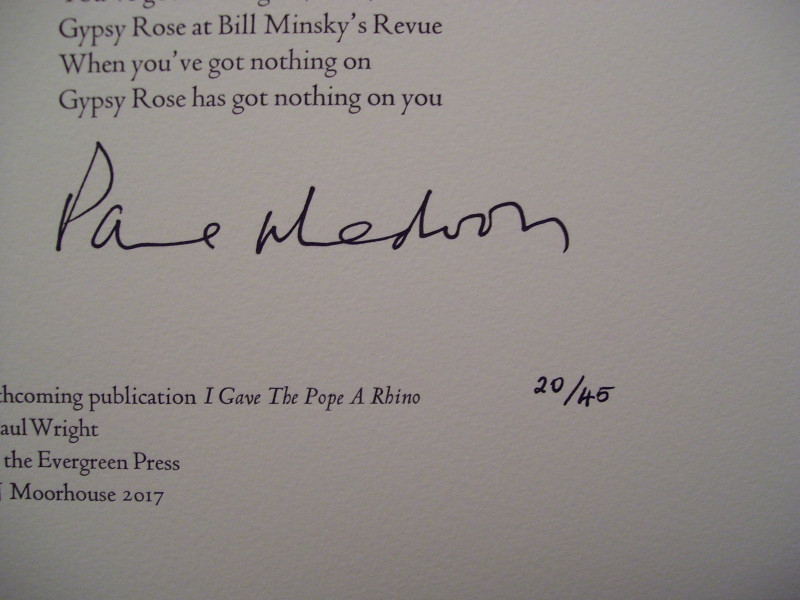 Gypsy Rose at Bill Minsky's Revue
When you've got nothing on
Gypsy Rose has got nothing on you
20/45
thcoming publication I Gave The Pope A Rhino
aul Wright
the Evergreen Press
Moorhouse 2017